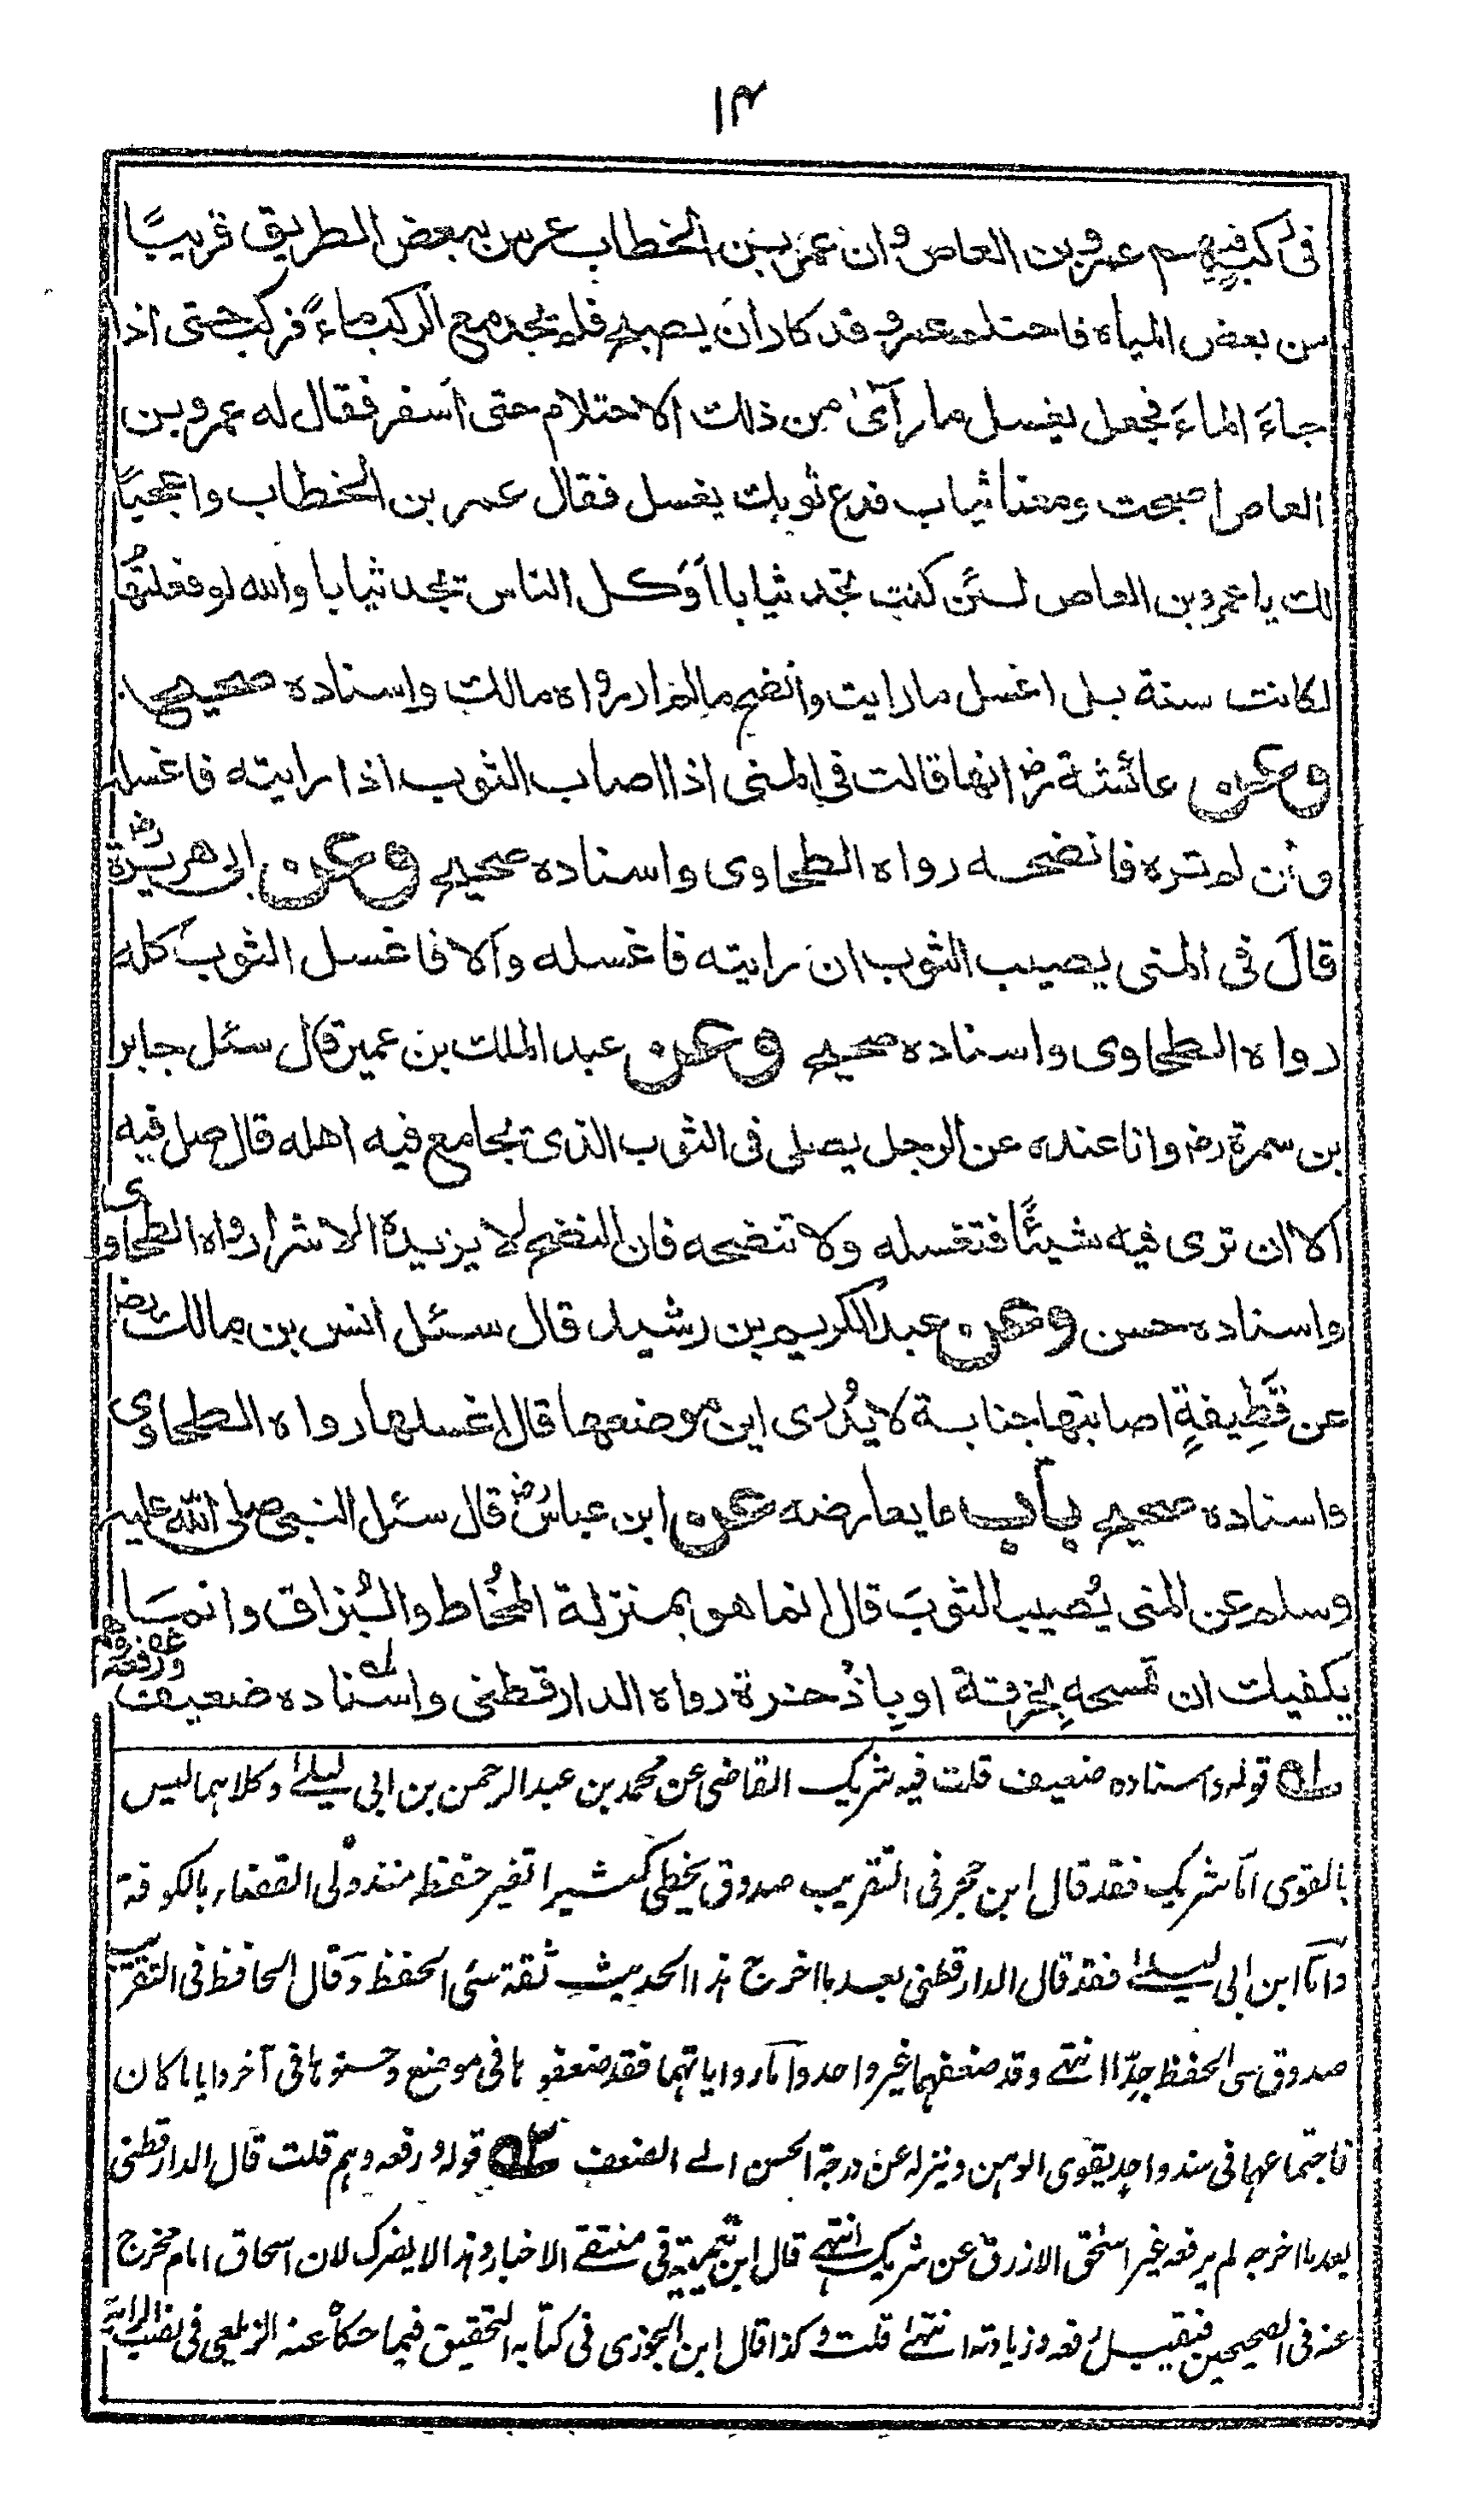 ۱۴
فی رکب فیهم عمرو بن العاص وان عمر بن الخطاب عرس ببعض الطریق قریبًا
من بعض المیاه فاحتلم عمر وقد کاد ان یصبح فلم یجد مع الرکب ماءً فرکب حتی اذا
جاءَ الماءَ فجعل یغسل ما رآیٰ من ذلك الاحتلام حتی اسفر فقال له عمرو بن
العاص اصبحت ومعنا ثیاب فدع ثوبك یغسل فقال عمر بن الخطاب واعجبًا
لك یا عمرو بن العاص لئن کنت تجد ثیابا أوَکل الناس تجد ثیابا والله لو فعلتُها
لکانت سنة بل اغسل ما رایت وانضح ما لم ار رواه مالك واسناده صحیح.
وعن عائشة رض انها قالت فی المنی اذا اصاب الثوب اذا رایته فاغسله
وان لم تره فانضحه رواه الطحاوی واسناده صحیح وعن ابی هریرة رض
قال فی المنی یصیب الثوب ان رایته فاغسله والا فاغسل الثوب کله
رواه الطحاوی واسناده صحیح وعن عبد الملك بن عمیر قال سئل جابر
بن سمرة رض وانا عنده عن الرجل یصلی فی الثوب الذی یجامع فیه اهله قال صل فیه
الا ان تری فیه شیئًا فتغسله ولا تنضحه فان النضح لا یزیده الا شرا رواه الطحاوی
واسناده حسن وعن عبد الکریم بن رشید قال سئل انس بن مالك رض
عن قَطِیفةٍ اصابتها جنابة لا یُدری این موضعها قال اغسلها رواه الطحاوی
واسناده صحیح باب ما یعارضه عن ابن عباس رض قال سئل النبی صلی الله علیه
وسلم عن المنی یُصیب الثوبَ قال انما هو بمنزلة المُخاط والبُزاق وانما
یکفیك ان تمسحه بِخرقة او بِاذْخرة رواه الدارقطنی واسناده له ضعیف ورفعه وهم
له قوله واسناده ضعیف قلت فیه شریک القاضی عن محمد بن عبد الرحمن بن ابی لیلیٰ وکلاهما لیس
بالقوی اما شریک فقد قال ابن حجر فی التقریب صدوق یخطی کثیرا تغیر حفظه منذ ولی القضاء بالکوفة
واما ابن ابی لیلیٰ فقد قال الدارقطنی بعد ما اخرج هذا الحدیث ثقة سئی الحفظ وقال الحافظ فی التقریب
صدوق سی الحفظ جدّا انتهی وقد ضعفهما غیر واحد واما روایاتهما فقد ضعفوها فی موضع وحسنوها فی آخر وایاما کان
فاجتماعهما فی سند واحد یقوی الوهن وینزله عن درجة الحسن الی الضعف قوله ورفعه وهم قلت قال الدارقطنی
بعد ما اخرجه لم یرفعه غیر اسحٰق الازرق عن شریک انتهی قال ابن تیمیة فی منتقی الاخبار وهذا لا یضرک لان اسحاق امام مخرج
عنه فی الصحیحین فیقبل رفعه وزیادته انتهیٰ قلت وکذا قال ابن الجوزی فی کتابه التحقیق فیما حکاه عنه الزیلعی فی نصب الرایة